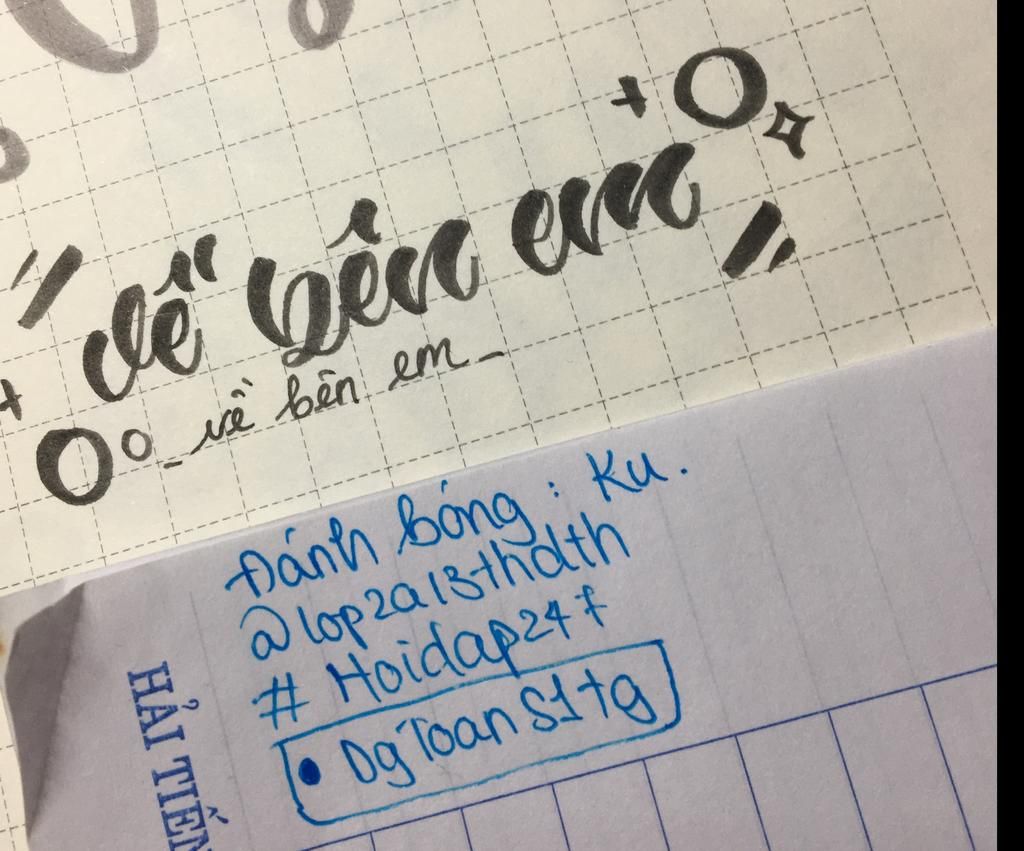 về bên em
_ về bên em _
Đánh bóng : Ku.
@lop2a13thdth
# Hoidap247
• DgToanS1tg
HẢI TIẾN